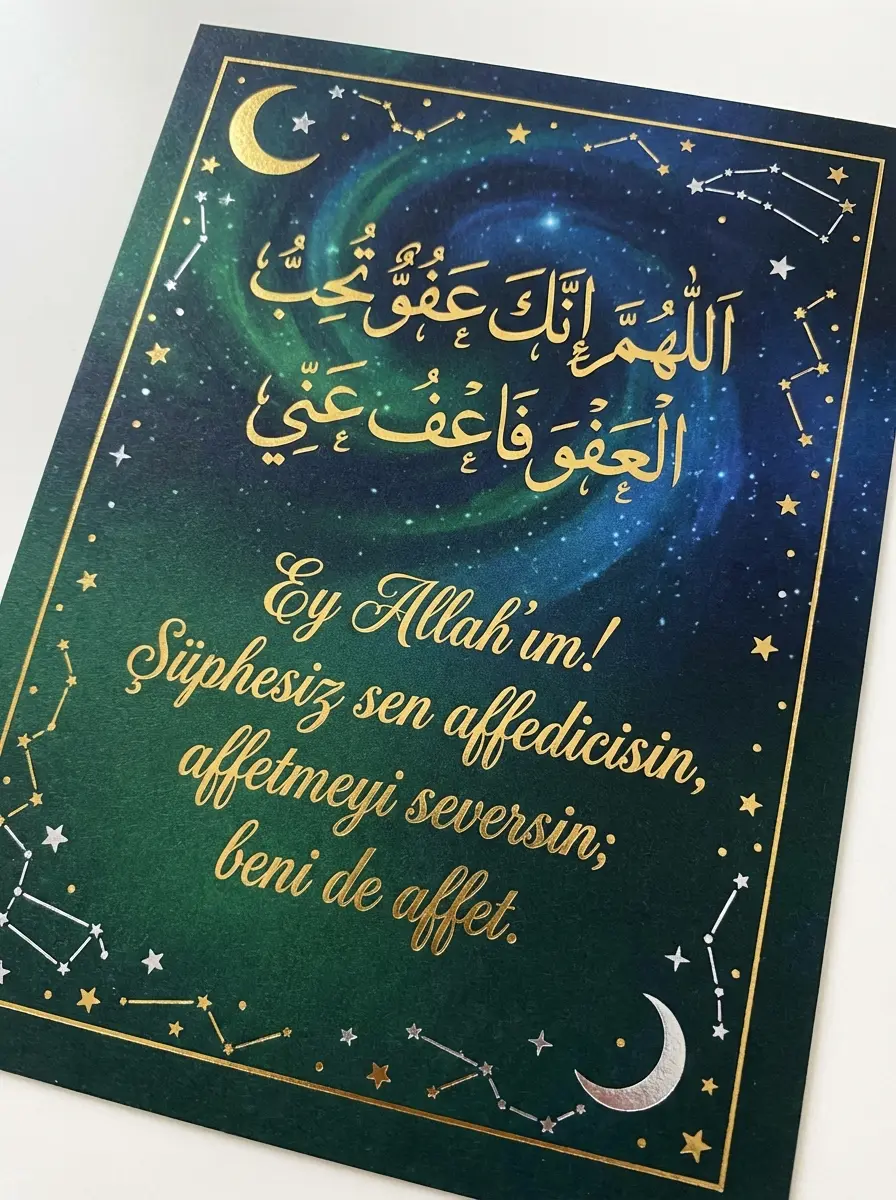 اَللّٰهُمَّ إِنَّكَ عَفُوٌّ تُحِبُّ
الْعَفْوَ فَاعْفُ عَنِّي
Ey Allah'ım!
Şüphesiz sen affedicisin,
affetmeyi seversin;
beni de affet.